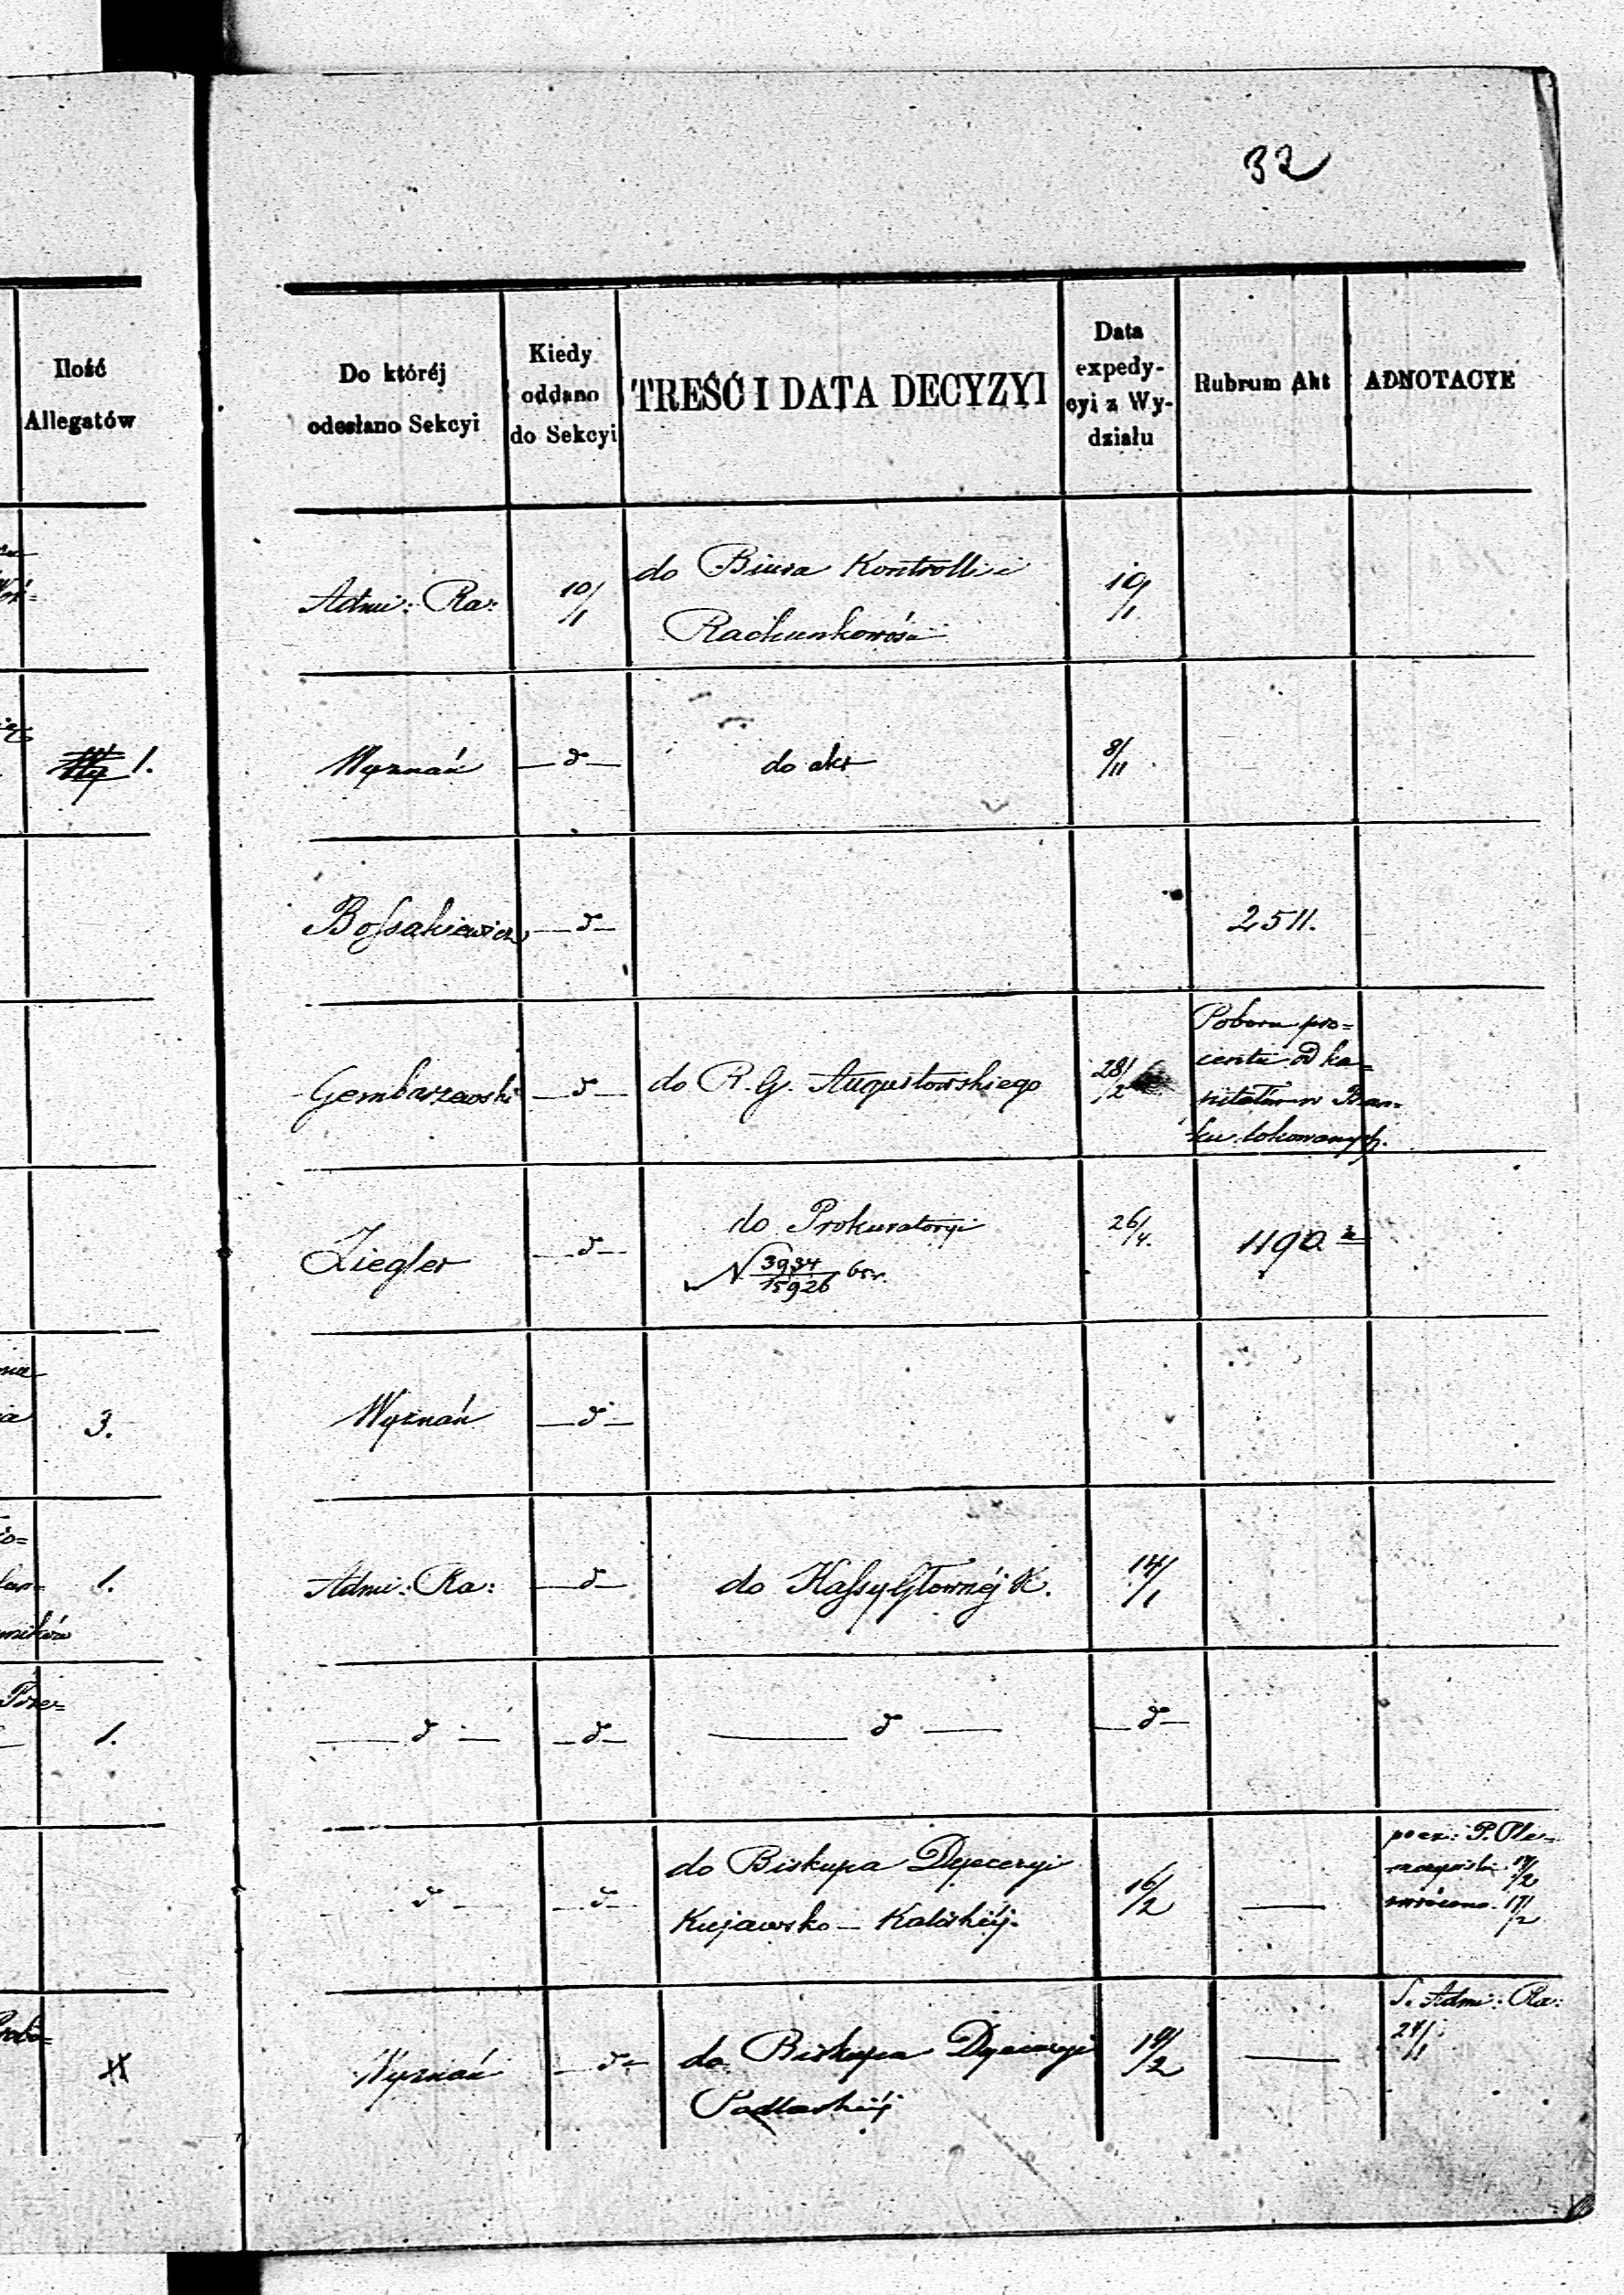 32
Ilość
Allegatów
Do któréj
odesłano Sekcyi
Kiedy
oddano
do Sekcyi
TREŚĆ I DATA DECYZYI
Data
expedy-
cyi z Wy-
działu
Rubrum Akt
ADNOTACYE
Admi: Ra:
10/1
do Biura Kontrolli i
Rachunkowości
10/1
1.
Wyznań
— d —
do akt
8/11
Bossakiewicz
— d —
2511.
Gembarzewski
— d —
do R. G. Augustowskiego
28/2
Poboru pro=
centu od ka=
pitałów w Ban=
ku lokowanych.
Ziegler
— d —
do Prokuratoryi
N 3934/15926
26/4.
1190
3.
Wyznań
— d —
1.
Admi: Ra:
— d —
do Kassy Głównéj K.
14/1
1.
— d —
— d —
— d —
— d —
— d —
— d —
do Biskupa Dyecezyi
Kujawsko – Kaliskiéj.
16/2
—
zwrócono 17/2
Wyznań
— d —
do Biskupa Dyecezyi
Podlaskiéj
19/2
—
S. Admi: Ra:
24/1